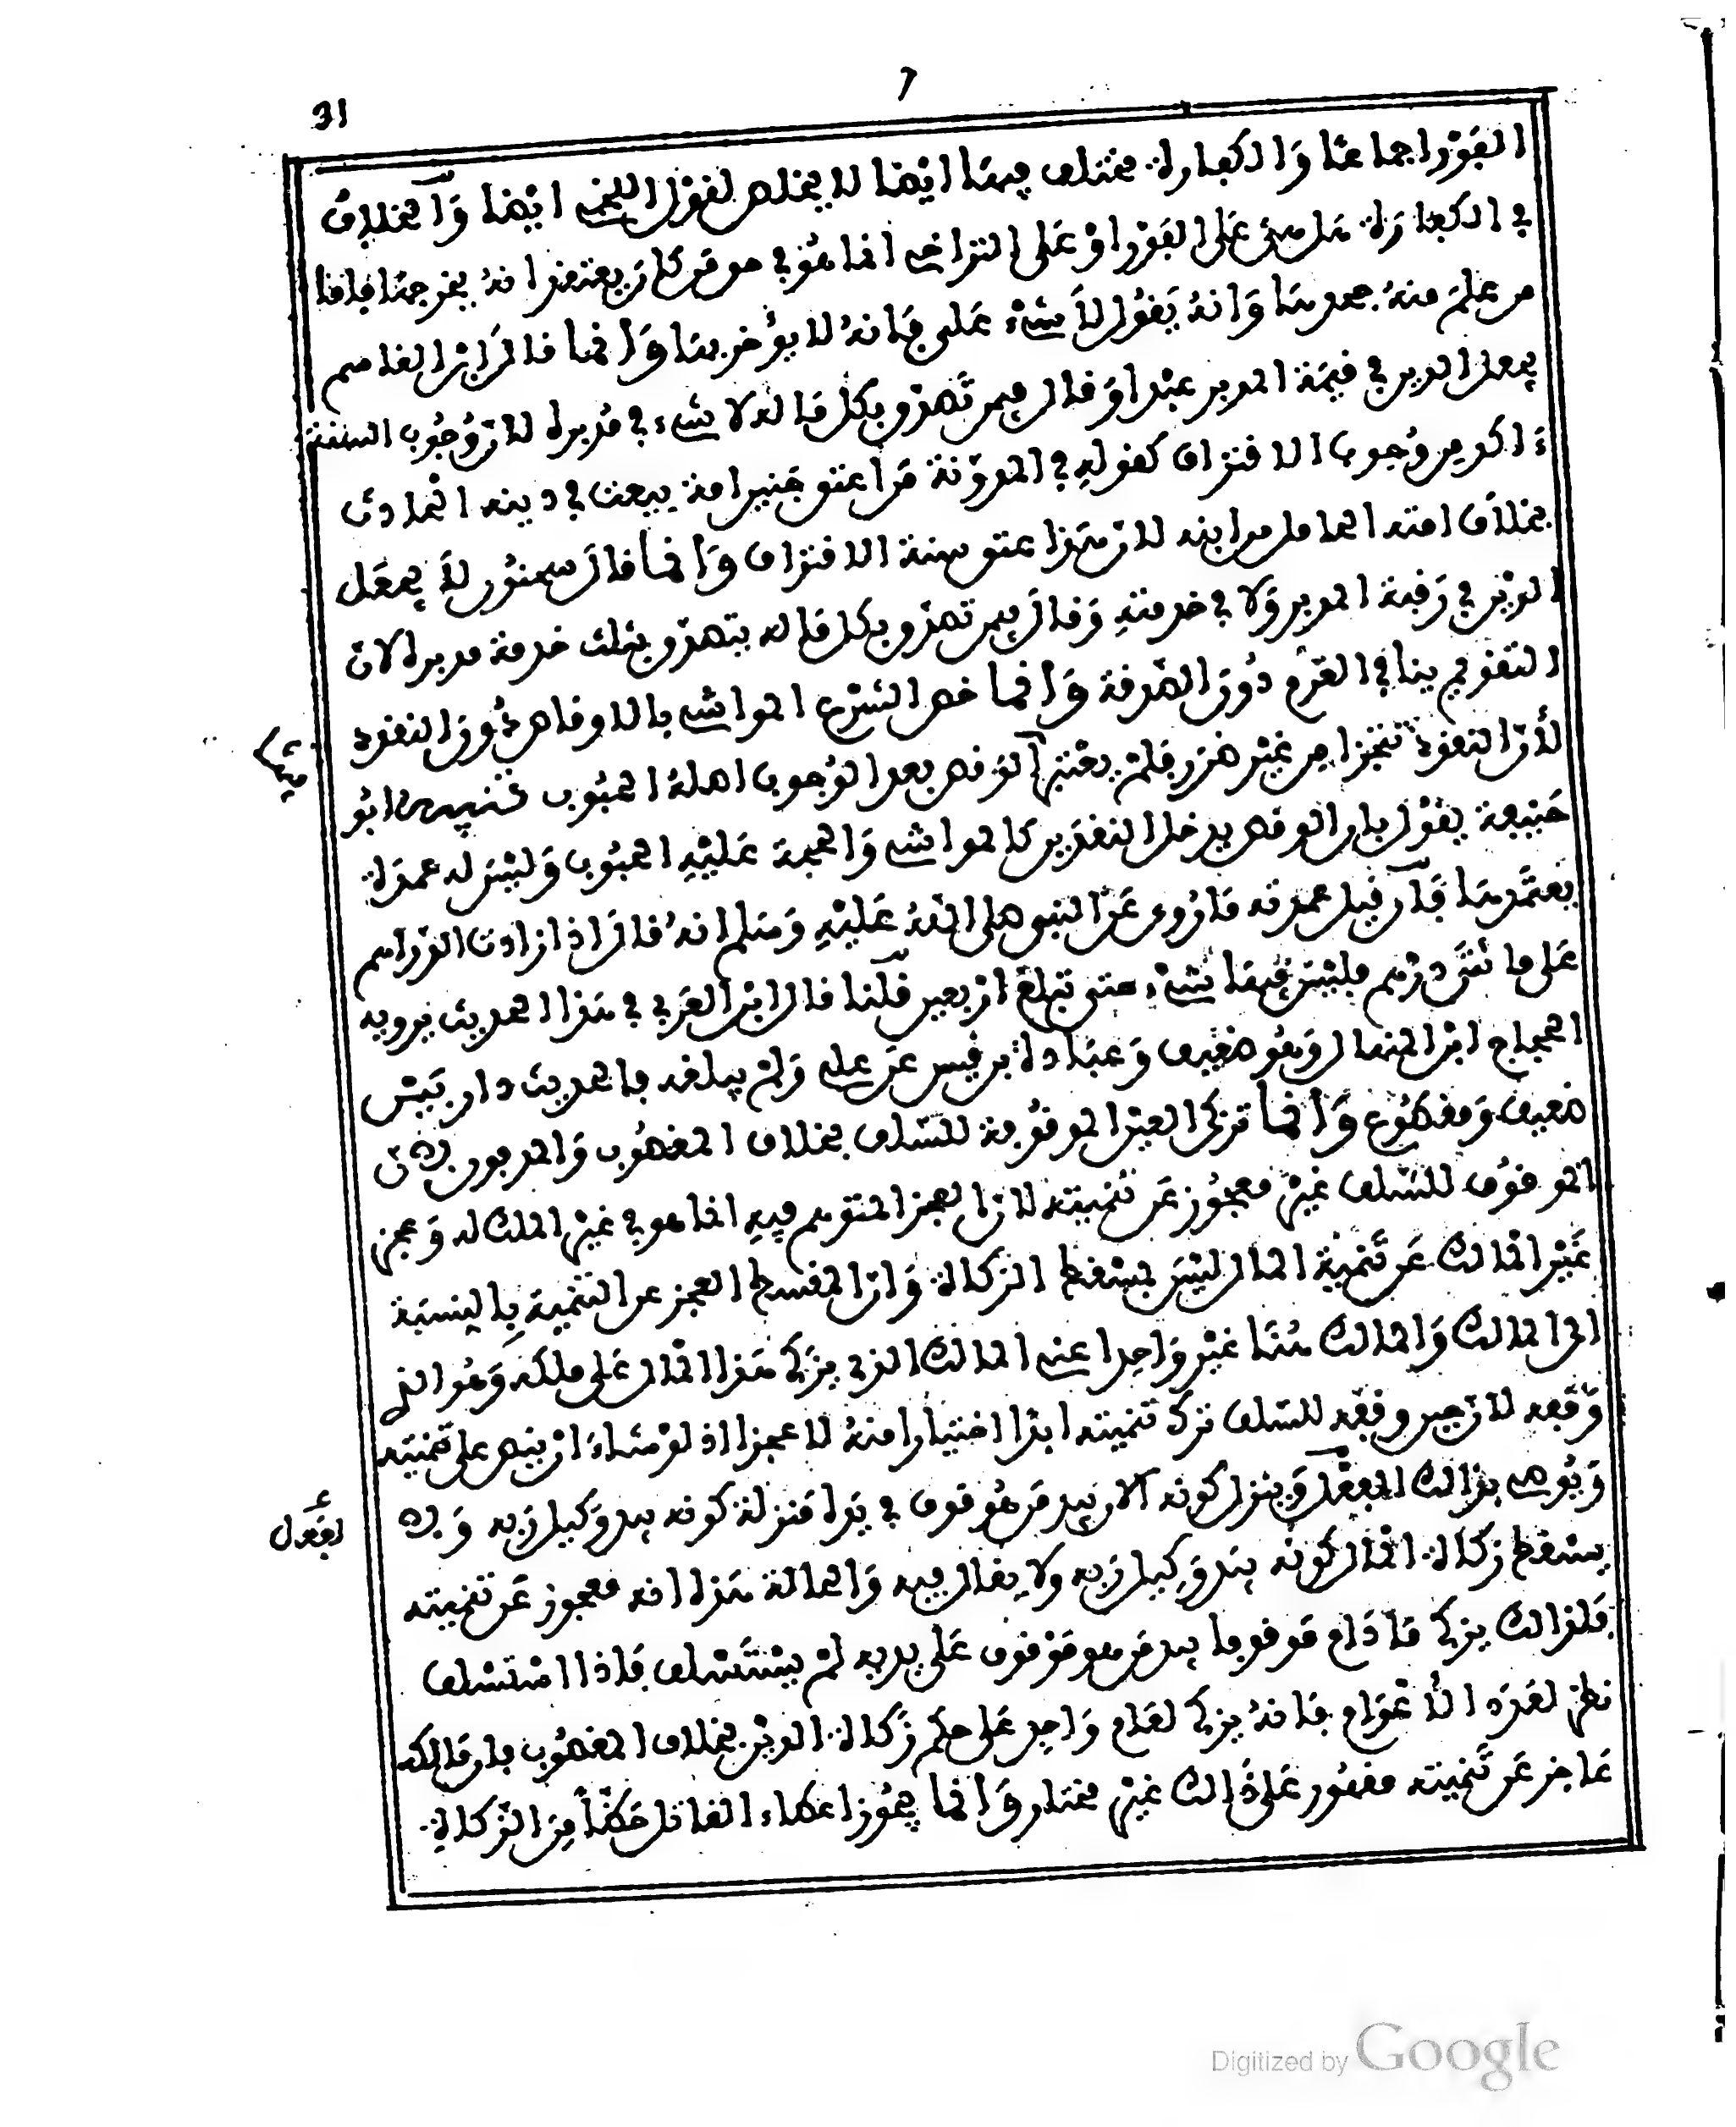 31
الفور اجماعا والكفارة مختلف فيها ايضا لا يخلص لقول اللخمي ايضا والخلاف
في الكفارة هل هي على الفور او على التراخي انما هو في حق من كان يعتقد انه يخرجها فاما
من علم منه جحدها وانه يقول لا شيء علي فانه لا يؤخر بها وانما قال ابن القاسم
يجعل الدين في قيمة المدبر عبدا وقال فيمن تصدق بكل ماله لا شيء في مدبره لان وجوب
ءاكد من وجوب الافتراق كقوله في المدونة من اعتق جنين امة بيعت في دينه الحادث
بخلاف امته الحامل من ابنه لان هذا عتق سنة الافتراق وانما قال سحنون لا يجعل
الدين في رقبة المدبر ولا في خدمته وقال فيمن تصدق بكل ماله يتصدق بثلث خدمة مدبره لان
التقويم ينافي الغرم دون الصدقة وانما خص الشرع المواشي بالاوقاص دون النقود
لأن النقود تتجزا من غير ضرر فلم يعتبر الوقص بعد الوجوب اصله الحبوب تنبيه ابو
حنيفة يقول بان الوقص يدخل النقدين كالمواشي والحجة عليه الحبوب وليس له عمدة
يعتمدها فان قيل عمدته ما روي عن النبي صلى الله عليه وسلم انه قال اذا زادت الدراهم
على مائتي درهم فليس فيها شيء حتى تبلغ اربعين قلنا قال ابن العربي في هذا الحديث يرويه
الحجاج ابن المنهال وهو ضعيف وعبادة بن قيس عن علي ولم يلقه فالحديث دار بين
ضعيف ومقطوع وانما تزكى العين الموقوفة للسلف بخلاف المغصوب والمدفون لان
الموقوف للسلف غير معجوز عن تنميته لان العجز المتوهم فيه انما هو في غير المالك له وعجز
غير المالك عن تنمية المال ليس بمسقط الزكاة وان المقسط العجز عن التنمية بالنسبة
الى المالك والمالك هنا غير واحد اعني المالك الذي يزكى هذا المال على ملكه وهو الذي
وقفه لان حين وقفه للسلف ترك تنميته ابدا اختيارا منه لا عجزا اذ لو شاء ان ينص على تنميته
ويوصي بذالك لفعل وينزل كونه الان بيد من هو موقوف في يده منزلة كونه بيد وكيل ربه ولا
يسقط زكاة المال كونه بيد وكيل ربه ولا يقال فيه والحالة هذه انه معجوز عن تنميته
فلذالك يزكى ما دام موقوفا بيد من هو موقوف على يديه لم يستسلف فاذا استسلف
نظر لعدد الاعوام فانه يزكى لعام واحد على حكم زكاة الدين بخلاف المغصوب فان مالكه
عاجز عن تنميته مقهور على ذالك غير مختار وانما يجوز اعطاء القاتل خطأ من الزكاة
يفعل
Digitized by Google